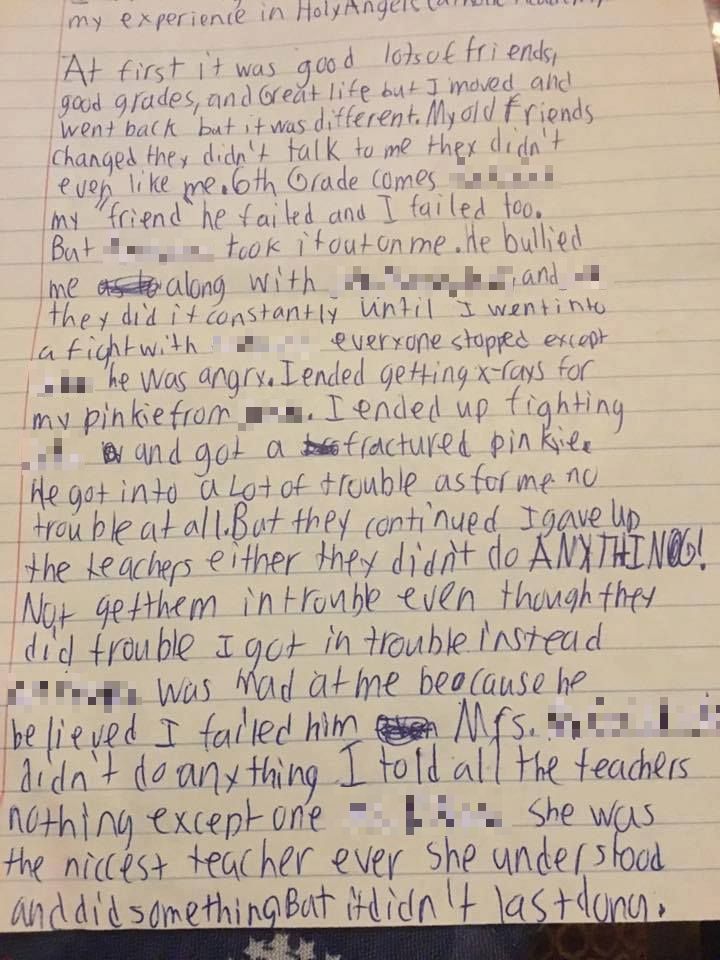 my experience in Holy Angels Catholic Academy
At first it was good lots of friends,
good grades, and Great life but I moved and
went back but it was different. My old friends
changed they didn't talk to me they didn't
even like me. 6th Grade comes
my "friend" he failed and I failed too.
But took it out on me. He bullied
me along with , and
they did it constantly until I went into
a fight with everyone stopped except
he was angry. I ended getting x-rays for
my pinkie from . I ended up fighting
and got a fractured pinkie.
He got into a Lot of trouble as for me no
trouble at all. But they continued I gave up
the teachers either they didn't do ANYTHING!
Not get them in trouble even though they
did trouble I got in trouble instead
was mad at me beacause he
believed I failed him Mrs.
didn't do anything I told all the teachers
nothing except one She was
the niccest teacher ever she understood
and did something But it didn't last long.